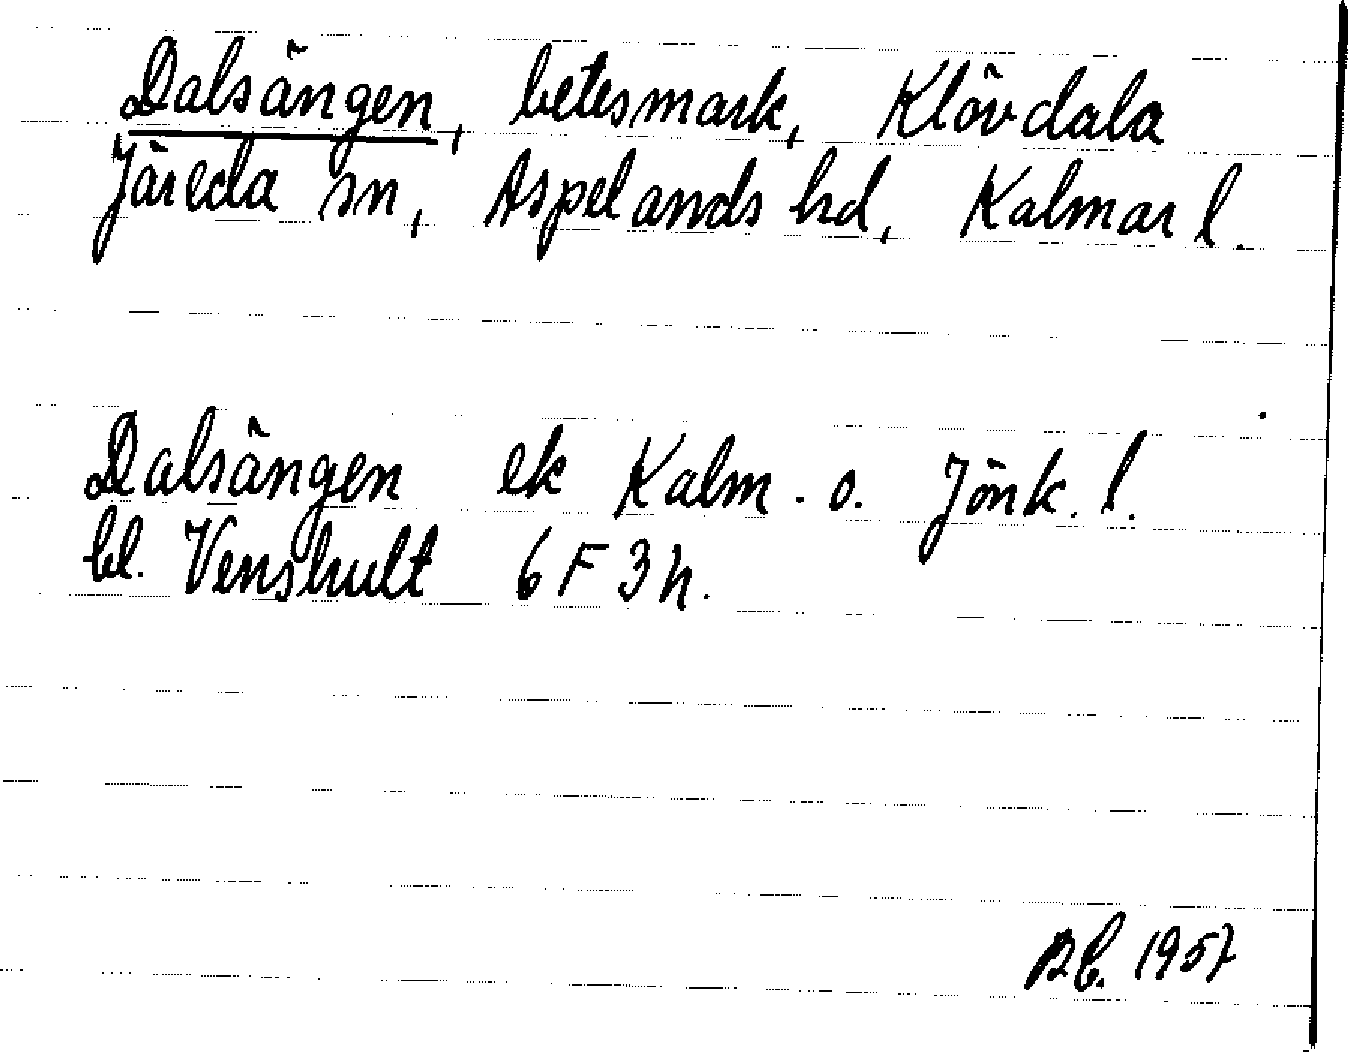 Dalsängen, betesmark, Klövdala
Järeda sn, Aspelands hd, Kalmar l.
Dalsängen ek Kalm. o. Jönk. l.
bl. Venshult 6 F 3 h.
1957